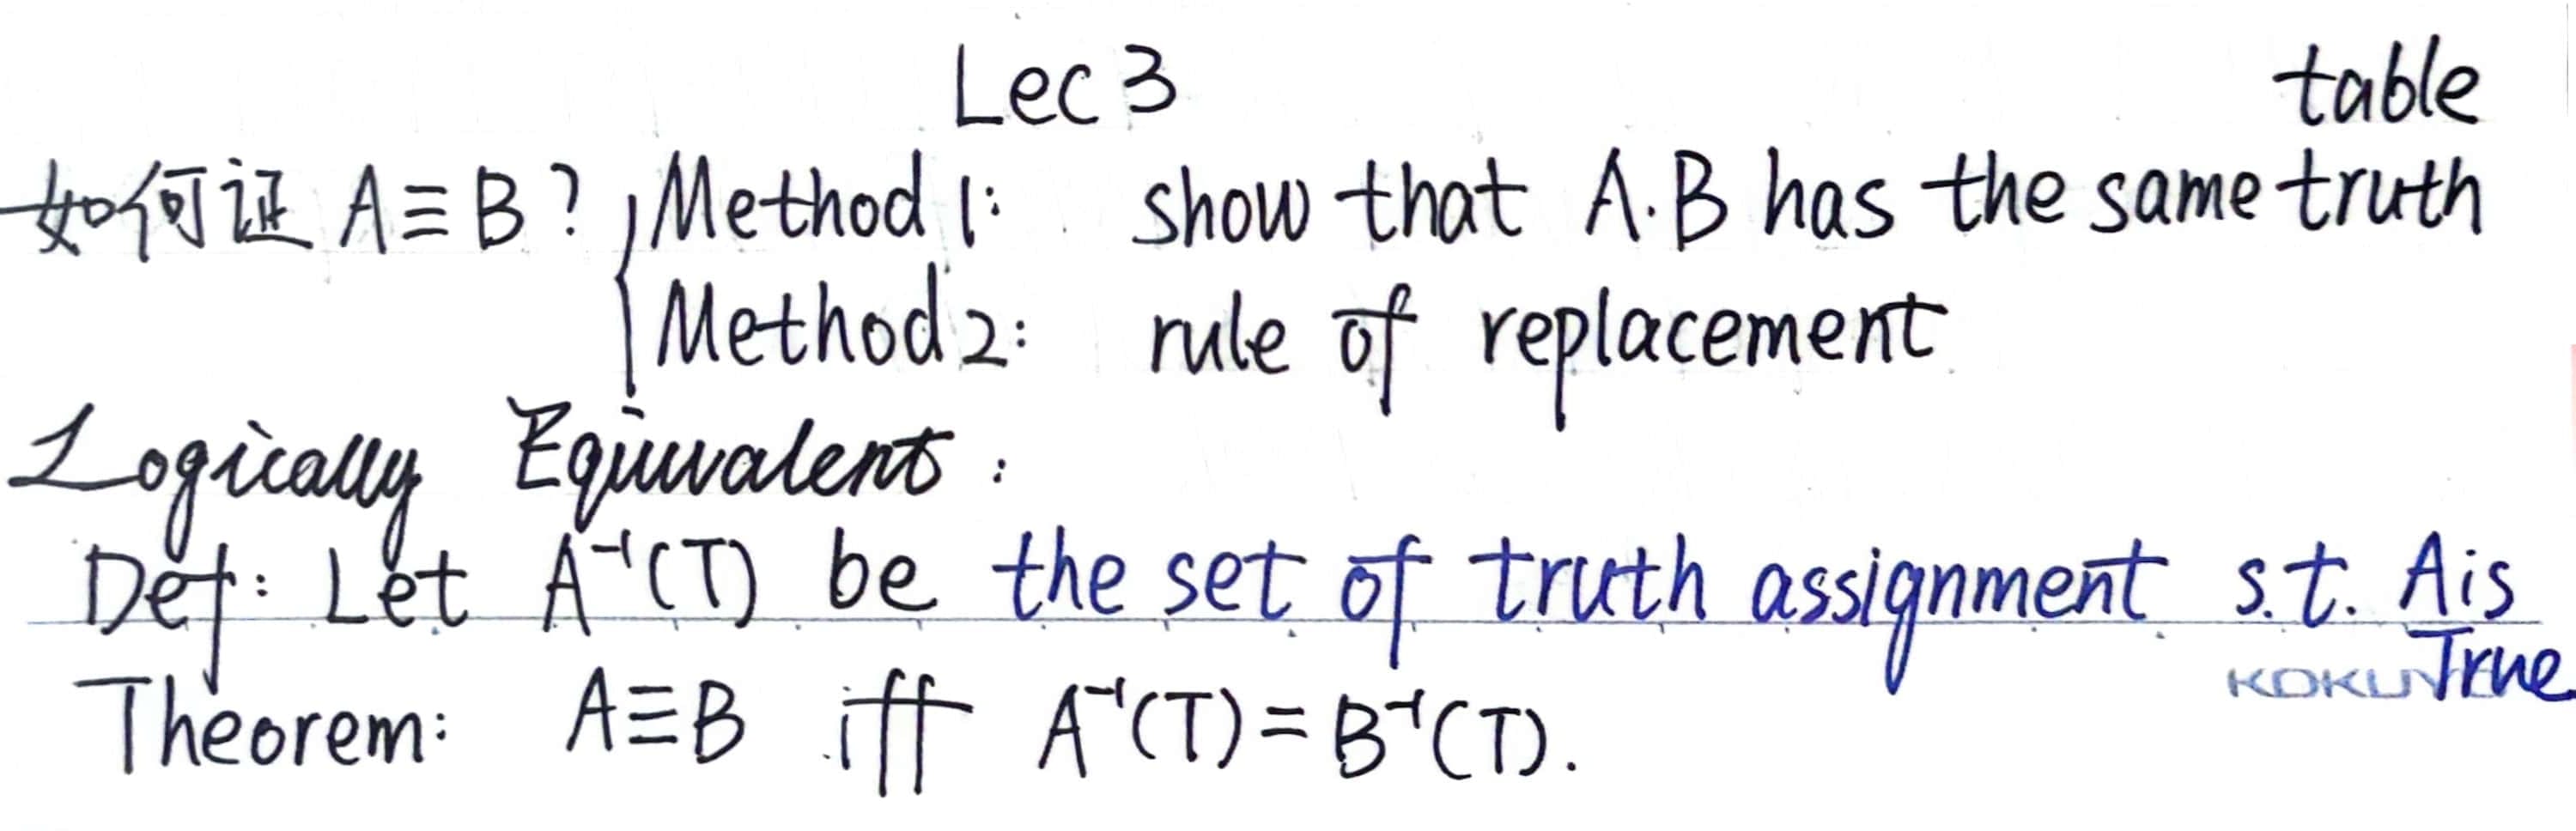 Lec 3
如何证 A≡B? { Method 1: show that A.B has the same truth table
Method 2: rule of replacement
Logically Equivalent:
Def: Let A⁻¹(T) be the set of truth assignment s.t. A is True
KOKUYO
Theorem: A≡B iff A⁻¹(T) = B⁻¹(T).